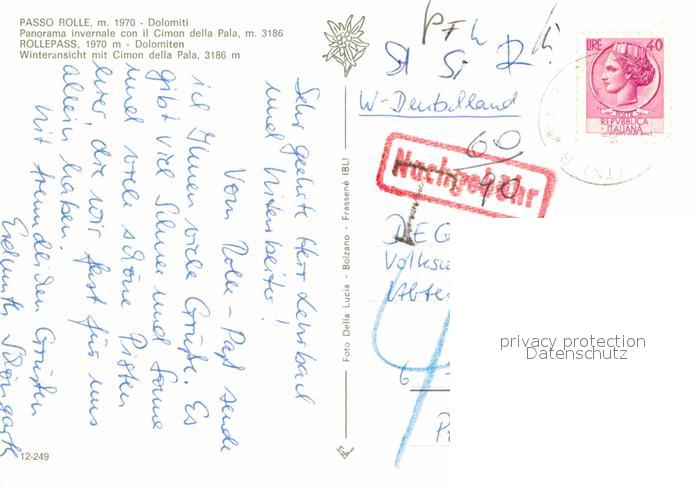 PASSO ROLLE, m. 1970 - Dolomiti
Panorama invernale con il Cimon della Pala, m. 3186
ROLLEPASS, 1970 m - Dolomiten
Winteransicht mit Cimon della Pala, 3186 m
Sehr geehrte Herr Lehrbach
und Mitarbeiter!
Vom Rolle-Paß sende
ich Ihnen viele Grüße. Es
gibt viel Schnee und Sonne
und viele schöne Pisten
die wir fast für uns
allein haben.
Mit freundlichen Grüßen
12-249
Foto Della Lucia - Bolzano - Frassenè (BL)
W-Deutschland
LIRE 40
POSTE
REPVBBLICA
ITALIANA
60
90
Nachgebühr
T
DEG
Volksw
Abte
6
privacy protection
Datenschutz